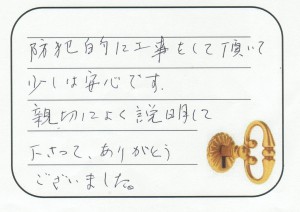 防犯的に工事をして頂いて
少しは安心です。
親切によく説明して
下さって、ありがとう
ございました。